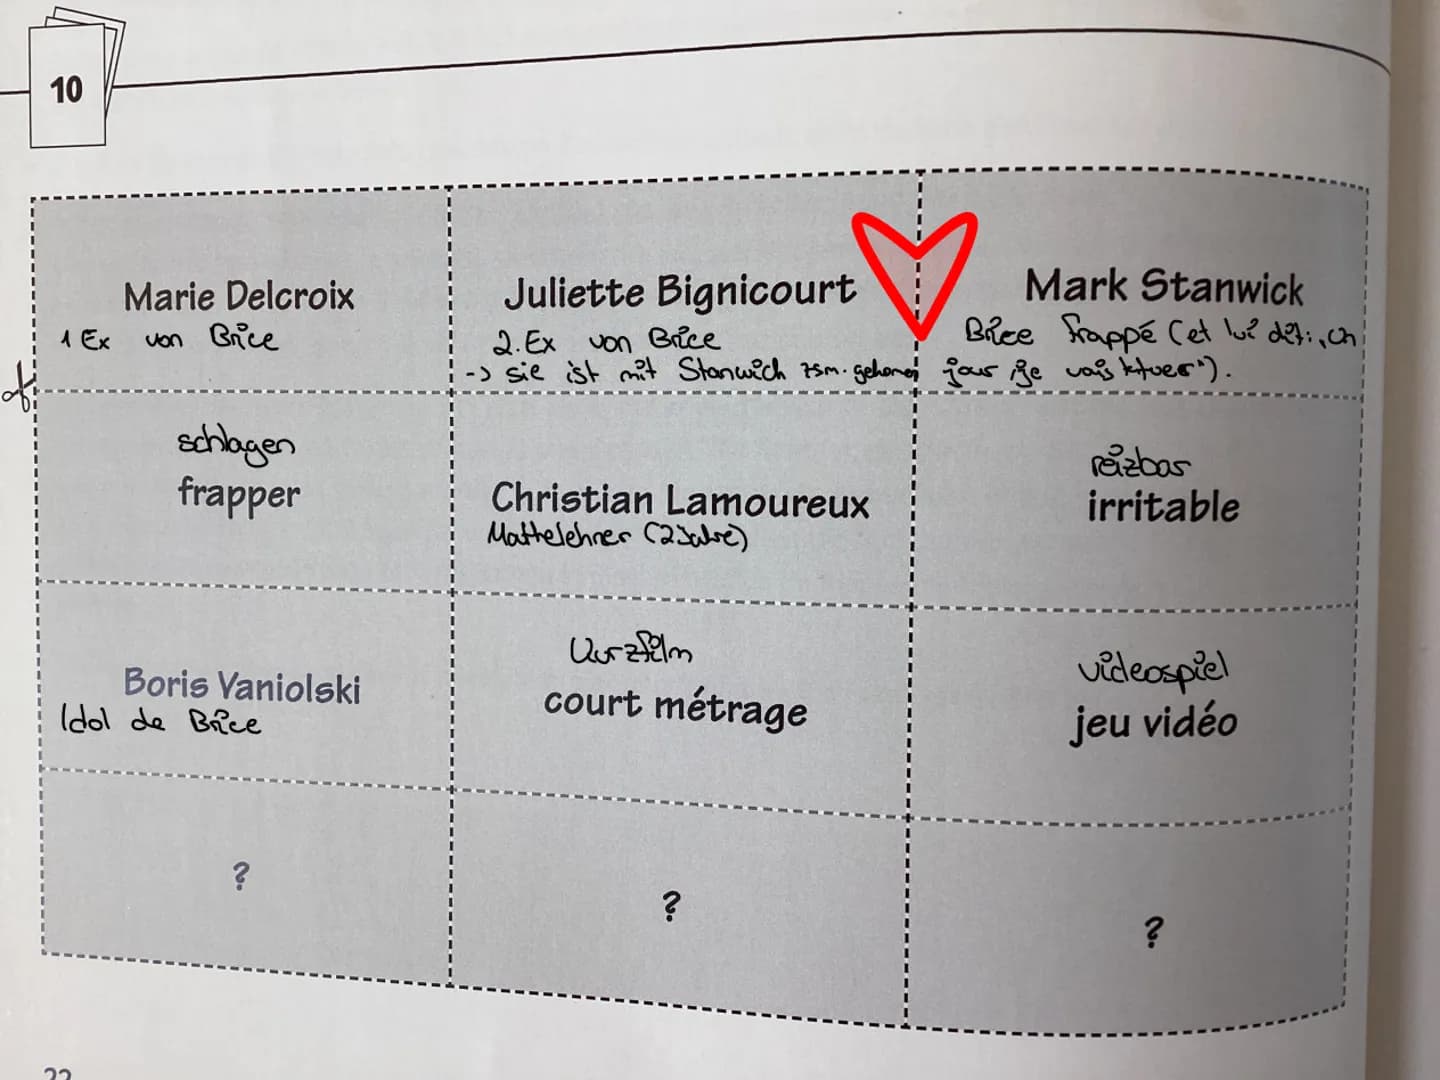 10
Marie Delcroix
1 Ex von Brice
Juliette Bignicourt
2. Ex von Brice
-> sie ist mit Stanwich zsm. gehonen
Mark Stanwick
Brice frappé (et lui dit: „Un
jour je vais ktuer").
schlagen
frapper
Christian Lamoureux
Mattelehrer (2 Jahre)
reizbar
irritable
Boris Vaniolski
Idol de Brice
Kurzfilm
court métrage
videospiel
jeu vidéo
?
?
?